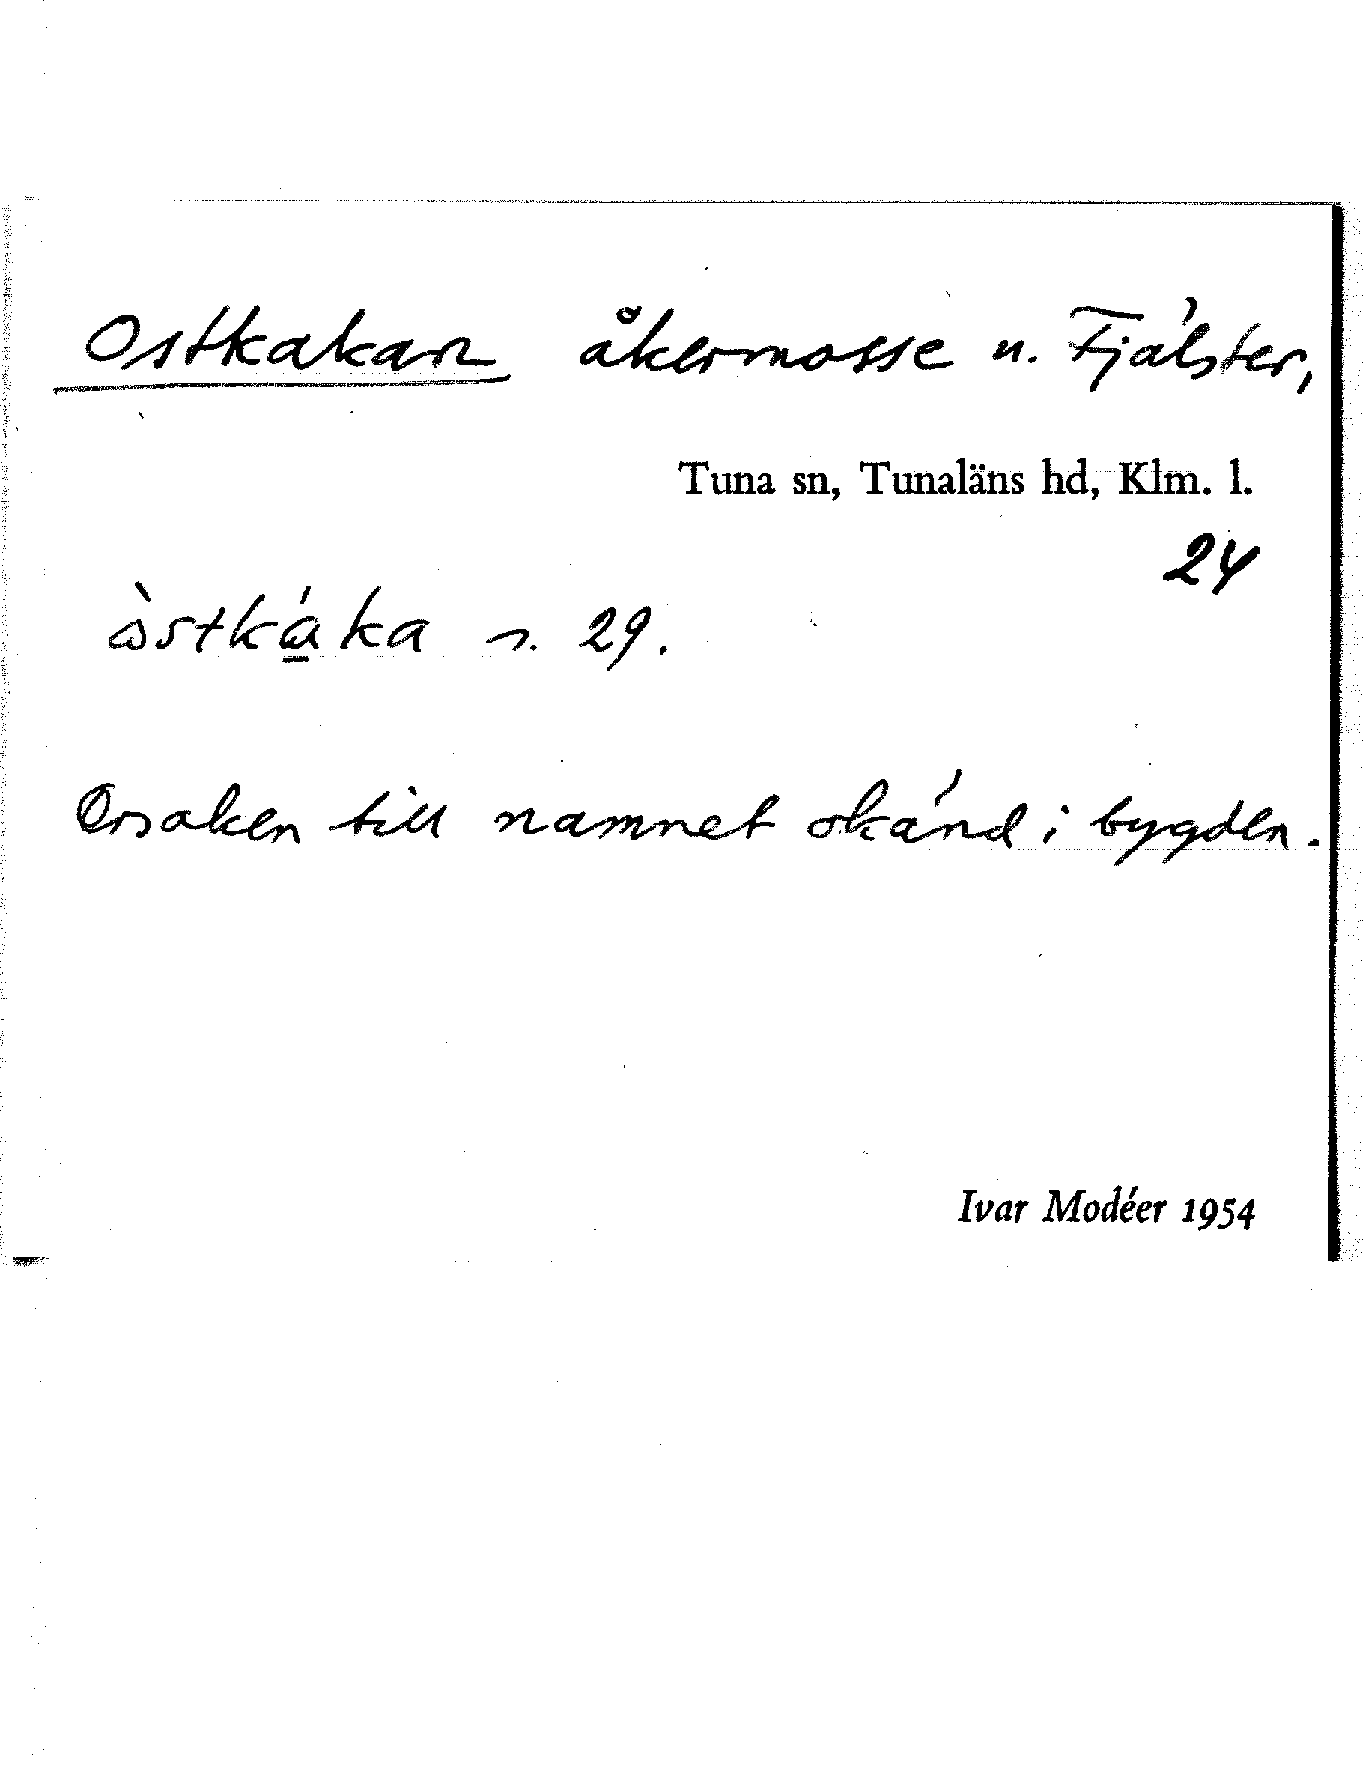 Ostkakan åkermosse u. Fjälster,
Tuna sn, Tunaläns hd, Klm. l.
24
òstká̱ka s. 29.
Orsaken till namnet okänd i bygden.
Ivar Modéer 1954